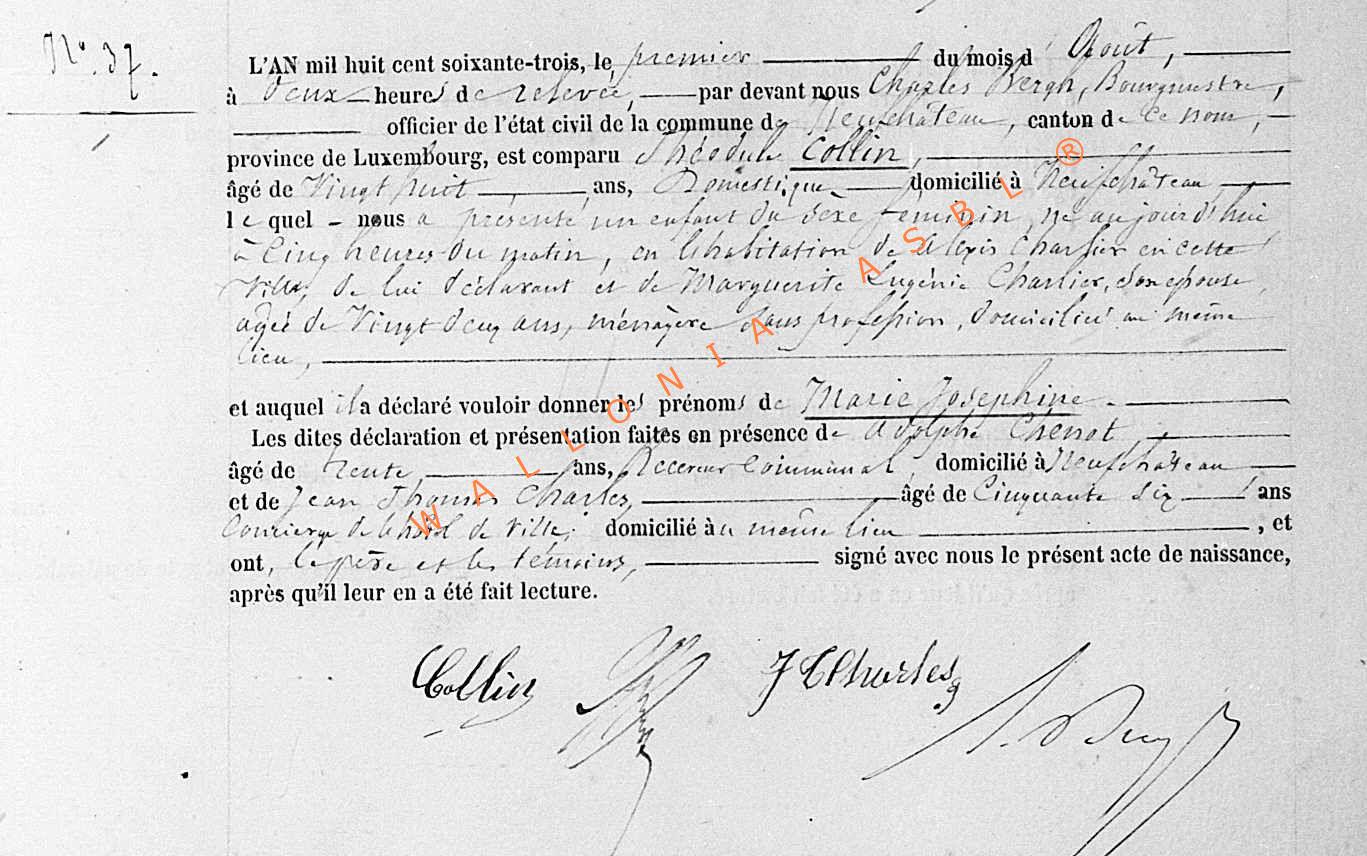 N° 37.
L'AN mil huit cent soixante-trois, le premier du mois d'Août,
à Deux heures de relevée, par devant nous Charles Bergh, Bourgmestre,
officier de l'état civil de la commune de Neufchâteau, canton de ce nom,
province de Luxembourg, est comparu Théodule Collin,
âgé de Vingt huit ans, Domestique domicilié à Neufchâteau
lequel - nous a présenté un enfant du sexe féminin, né aujourd'hui
à Cinq heures du matin, en l'habitation de Alexis Charlier en cette
Ville, de lui déclarant et de Marguerite Eugénie Charlier, son épouse,
agée de Vingt deux ans, ménagère sans profession, domicilié au même
lieu,
et auquel il a déclaré vouloir donner les prénoms de Marie Josephine.
Les dites déclaration et présentation faites en présence de Adolphe Chenot,
âgé de Trente ans, Receveur Communal, domicilié à Neufchâteau
et de Jean Thomas Charles, âgé de Cinquante six ans
Concierge de l'hotel de Ville, domicilié au même lieu, et
ont, le père et les témoins, signé avec nous le présent acte de naissance,
après qu'il leur en a été fait lecture.
Collin J T Charles
WALLONIA ASBL ®